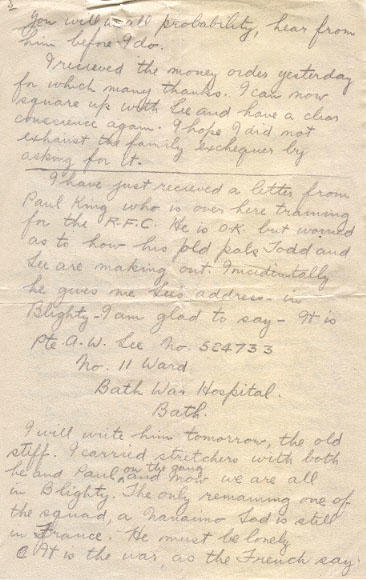 You will in all probability, hear from
him before I do.
I recieved the money order yesterday
for which many thanks. I can now
square up with Lee and have a clear
conscience again. I hope I did not
exhaust the family exchequer by
asking for it.
I have just recieved a letter from
Paul King who is over here training
for the R.F.C. He is O.K. but worried
as to how his old pals Todd and
Lee are making out. Incidentally
he gives me Lee's address - in
Blighty - I am glad to say - It is
Pte. A.W. Lee No. 524733
No. 11 Ward
Bath War Hospital.
Bath.
I will write him tomorrow, the old
stiff. I carried stretchers with both
he and Paul on the gang and now we are all
in Blighty. The only remaining one of
the squad, a Nanaimo lad is still
in France. He must be lonely
C'est is the war, as the French say.